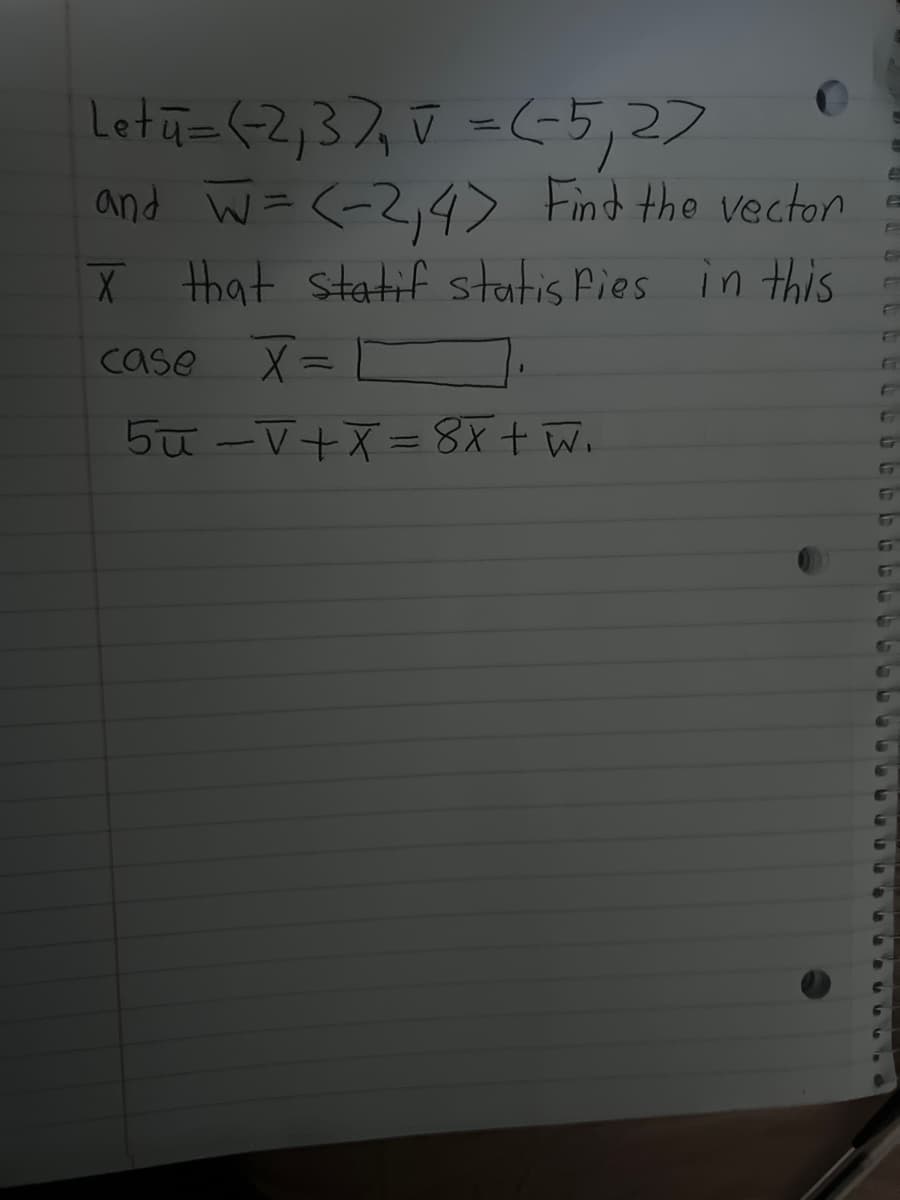 Let ū=⟨-2,3⟩, v̄ =⟨-5,2⟩
and w̄=⟨-2,4⟩ Find the vector
x̄ that statif statisfies in this
case x̄=▭.
5ū-v̄+x̄=8x̄+w̄.